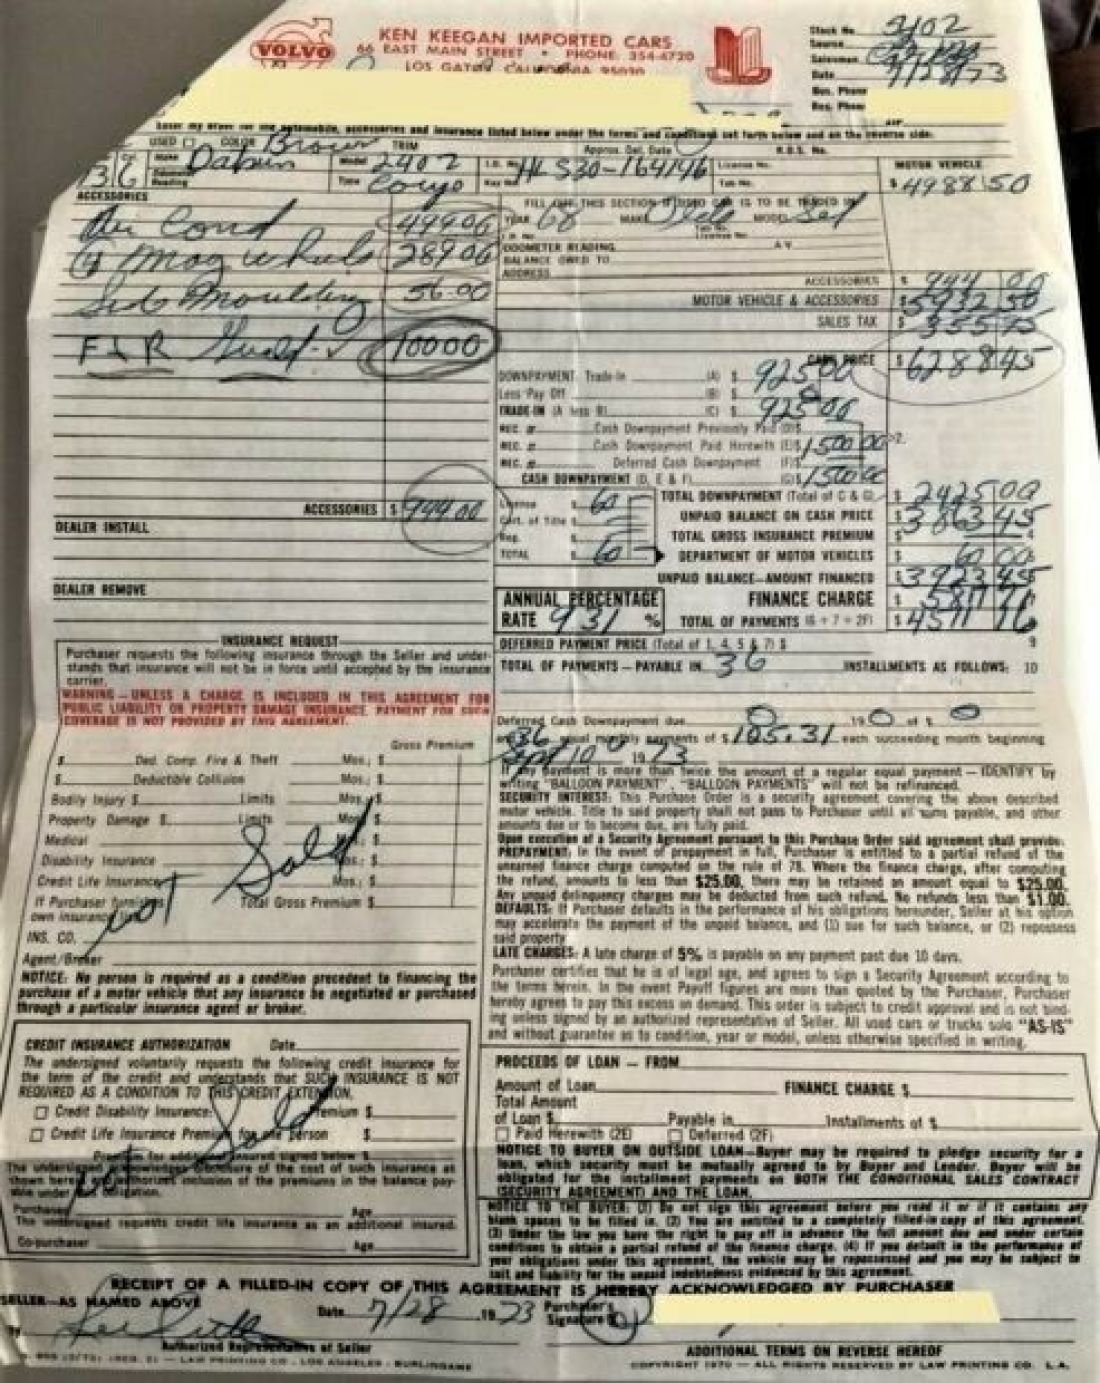 VOLVO
KEN KEEGAN IMPORTED CARS
66 EAST MAIN STREET • PHONE: 354-4720
LOS GATOS, CALIFORNIA 95030
Stock No. 2402
Source
Salesman
Date 7/28/73
Bus. Phone
Res. Phone
Enter my order for the automobile, accessories and insurance listed below under the terms and conditions set forth below and on the reverse side.
USED COLOR Brown TRIM Approx. Del. Date R.O.S. No.
Make Datsun Model 240Z I.D. No. HLS30-164146 License No.
Reading Type Coupe Key No. Tab No.
MOTOR VEHICLE $ 4988 50
ACCESSORIES
Air Cond 499.00
(4) Mag Wheels 289.00
Side Moulding 56.00
F & R Guard 100.00
FILL OUT THIS SECTION IF USED CAR IS TO BE TRADED IN
YEAR 68 MAKE Olds MODEL Sed
ODOMETER READING A V
BALANCE OWED TO
ADDRESS
ACCESSORIES $ 944 00
MOTOR VEHICLE & ACCESSORIES $ 5932 50
SALES TAX $ 355 95
CASH PRICE $ 6288 45
DOWNPAYMENT: Trade-In (A) $ 925 00
Less Pay Off (B) $ 0
TRADE-IN (A less B) (C) $ 925 00
REC. # Cash Downpayment Previously Paid (D) $
REC. # Cash Downpayment Paid Herewith (E) $ 1500 00
REC. # Deferred Cash Downpayment (F) $
CASH DOWNPAYMENT (D, E & F) (G) $ 1500 00
ACCESSORIES $ 944.00
License $ 60
Cert. of Title $
Reg. $
TOTAL $ 60
TOTAL DOWNPAYMENT (Total of C & G) $ 2425 00
UNPAID BALANCE ON CASH PRICE $ 3863 45
TOTAL GROSS INSURANCE PREMIUM $
DEPARTMENT OF MOTOR VEHICLES $ 60 00
UNPAID BALANCE—AMOUNT FINANCED $ 3923 45
DEALER INSTALL
DEALER REMOVE
ANNUAL PERCENTAGE RATE 9.31 %
FINANCE CHARGE $ 587 71
TOTAL OF PAYMENTS (6 + 7 + 2F) $ 4511 16
DEFERRED PAYMENT PRICE (Total of 1, 4, 5 & 7) $ 9
TOTAL OF PAYMENTS — PAYABLE IN 36 INSTALLMENTS AS FOLLOWS: 10
Deferred Cash Downpayment due 0 19 0 of $ 0
and 36 equal monthly payments of $ 125.31 each succeeding month beginning
Sept 10 1973
If any payment is more than twice the amount of a regular equal payment — IDENTIFY by
writing "BALLOON PAYMENT". "BALLOON PAYMENTS" will not be refinanced.
SECURITY INTEREST: This Purchase Order is a security agreement covering the above described
motor vehicle. Title to said property shall not pass to Purchaser until all sums payable, and other
amounts due or to become due, are fully paid.
Upon execution of a Security Agreement pursuant to this Purchase Order said agreement shall provide:
PREPAYMENT: In the event of prepayment in full, Purchaser is entitled to a partial refund of the
unearned finance charge computed on the rule of 78. Where the finance charge, after computing
the refund, amounts to less than $25.00, there may be retained an amount equal to $25.00.
Any unpaid delinquency charges may be deducted from such refund. No refunds less than $1.00.
DEFAULTS: If Purchaser defaults in the performance of his obligations hereunder, Seller at his option
may accelerate the payment of the unpaid balance, and (1) sue for such balance, or (2) repossess
said property
LATE CHARGES: A late charge of 5% is payable on any payment past due 10 days.
Purchaser certifies that he is of legal age, and agrees to sign a Security Agreement according to
the terms herein. In the event Payoff figures are more than quoted by the Purchaser, Purchaser
hereby agrees to pay this excess on demand. This order is subject to credit approval and is not bind-
ing unless signed by an authorized representative of Seller. All used cars or trucks sold "AS-IS"
and without guarantee as to condition, year or model, unless otherwise specified in writing.
INSURANCE REQUEST
Purchaser requests the following insurance through the Seller and under-
stands that insurance will not be in force until accepted by the insurance
carrier.
WARNING — UNLESS A CHARGE IS INCLUDED IN THIS AGREEMENT FOR
PUBLIC LIABILITY OR PROPERTY DAMAGE INSURANCE, PAYMENT FOR SUCH
COVERAGE IS NOT PROVIDED BY THIS AGREEMENT.
Gross Premium
$ Ded. Comp. Fire & Theft Mos.; $
$ Deductible Collision Mos.; $
Bodily Injury $ Limits Mos.; $
Property Damage $ Limits Mos.; $
Medical Mos.; $
Disability Insurance Mos.: $
Credit Life Insurance Mos.; $
If Purchaser furnishes Total Gross Premium $
own insurance
Not Sold
INS. CO.
Agent/Broker
NOTICE: No person is required as a condition precedent to financing the
purchase of a motor vehicle that any insurance be negotiated or purchased
through a particular insurance agent or broker.
CREDIT INSURANCE AUTHORIZATION Date
The undersigned voluntarily requests the following credit insurance for
the term of the credit and understands that SUCH INSURANCE IS NOT
REQUIRED AS A CONDITION TO THIS CREDIT EXTENSION.
Credit Disability Insurance: Premium $
Credit Life Insurance Premium for one person $
Premium for additional insured signed below $
Not Sold
The undersigned acknowledges disclosure of the cost of such insurance as
shown here and authorizes inclusion of the premiums in the balance pay-
able under this obligation.
Purchaser Age
The undersigned requests credit life insurance as an additional insured:
Co-purchaser Age
PROCEEDS OF LOAN — FROM
Amount of Loan FINANCE CHARGE $
Total Amount
of Loan $ Payable in Installments of $
Paid Herewith (2E) Deferred (2F)
NOTICE TO BUYER ON OUTSIDE LOAN—Buyer may be required to pledge security for a
loan, which security must be mutually agreed to by Buyer and Lender. Buyer will be
obligated for the installment payments on BOTH THE CONDITIONAL SALES CONTRACT
(SECURITY AGREEMENT) AND THE LOAN.
NOTICE TO THE BUYER: (1) Do not sign this agreement before you read it or if it contains any
blank spaces to be filled in. (2) You are entitled to a completely filled-in copy of this agreement.
(3) Under the law you have the right to pay off in advance the full amount due and under certain
conditions to obtain a partial refund of the finance charge. (4) If you default in the performance of
your obligations under this agreement, the vehicle may be repossessed and you may be subject to
suit and liability for the unpaid indebtedness evidenced by this agreement.
RECEIPT OF A FILLED-IN COPY OF THIS AGREEMENT IS HEREBY ACKNOWLEDGED BY PURCHASER
SELLER—AS NAMED ABOVE Date 7/28 1973 Purchaser's Signature
Authorized Representative of Seller
LAW PRINTING CO., LOS ANGELES - BURLINGAME
ADDITIONAL TERMS ON REVERSE HEREOF
COPYRIGHT 1970 — ALL RIGHTS RESERVED BY LAW PRINTING CO. L.A.